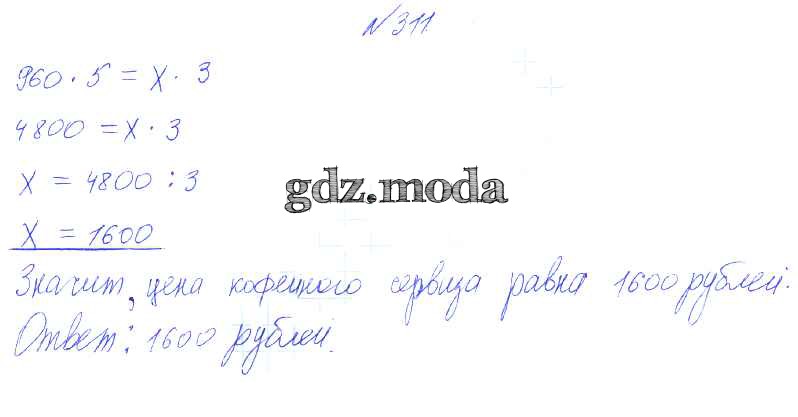 №311.
960 · 5 = x · 3
4800 = x · 3
x = 4800 : 3
gdz.moda
x = 1600
Значит, цена кофейного сервиза равна 1600 рублей.
Ответ: 1600 рублей.